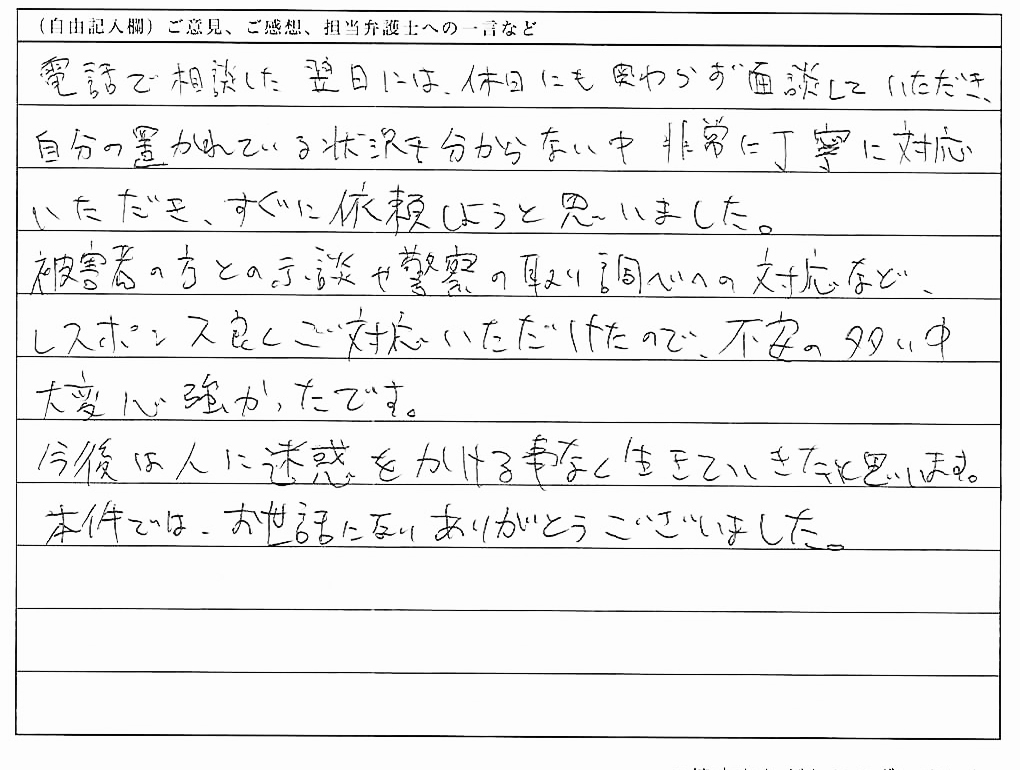 （自由記入欄）ご意見、ご感想、担当弁護士への一言など
電話で相談した翌日には、休日にも関わらず面談していただき、
自分の置かれている状況も分からない中非常に丁寧に対応
いただき、すぐに依頼しようと思いました。
被害者の方との示談や警察の取り調べへの対応など、
レスポンス良くご対応いただけたので、不安の多い中
大変心強かったです。
今後は人に迷惑をかける事なく生きていきたいと思います。
本件では、お世話になりありがとうございました。